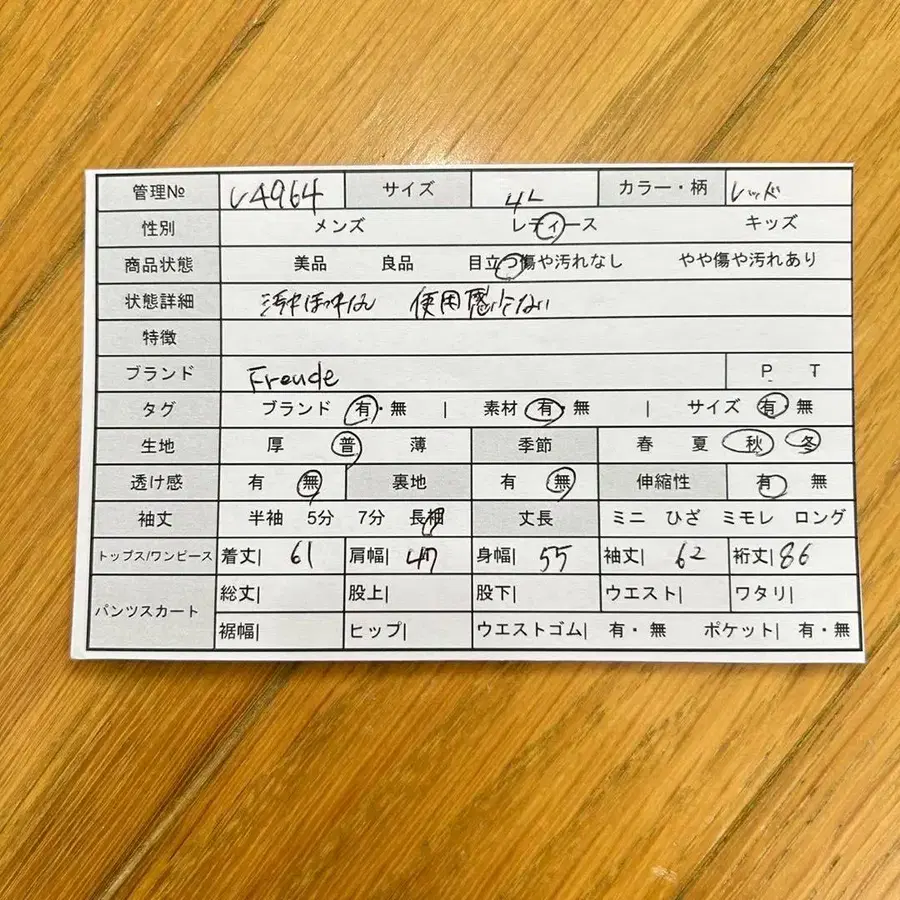 管理№ サイズ 4L カラー・柄 レッド
性別 メンズ レディース キッズ
商品状態 美品 良品 目立つ傷や汚れなし やや傷や汚れあり
状態詳細 使用感少ない
特徴
ブランド Freude P T
タグ ブランド 有・無 | 素材 有・無 | サイズ 有・無
生地 厚 普 薄 季節 春 夏 秋 冬
透け感 有 無 裏地 有 無 伸縮性 有 無
袖丈 半袖 5分 7分 長袖 丈長 ミニ ひざ ミモレ ロング
トップス/ワンピース 着丈| 61 肩幅| 47 身幅| 55 袖丈| 62 裄丈| 86
パンツスカート 総丈| 股上| 股下| ウエスト| ワタリ|
裾幅| ヒップ| ウエストゴム| 有・無 ポケット| 有・無